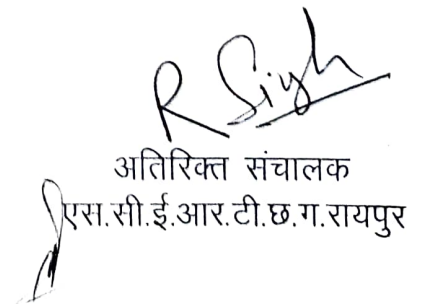 R Singh
अतिरिक्त संचालक
एस.सी.ई.आर.टी.छ.ग.रायपुर